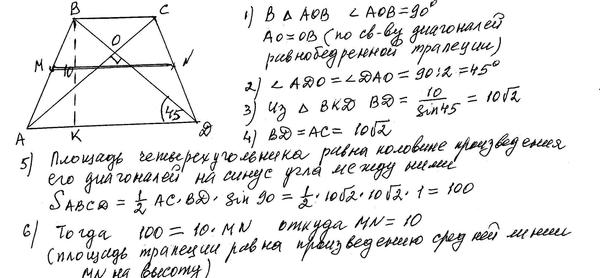 B
C
O
M
10
45
A
K
D
1) В △ AOB ∠AOB = 90°
AO = OB (по св-ву диагоналей
равнобедренной трапеции)
2) ∠ADO = ∠DAO = 90:2 = 45°
3) Из △ BKD BD = 10/sin45 = 10√2
4) BD = AC = 10√2
5) Площадь четырехугольника равна половине произведения
его диагоналей на синус угла между ними
S ABCD = 1/2 AC · BD · sin 90 = 1/2 · 10√2 · 10√2 · 1 = 100
6) Тогда 100 = 10 · MN откуда MN = 10
(площадь трапеции равна произведению средней линии
MN на высоту)